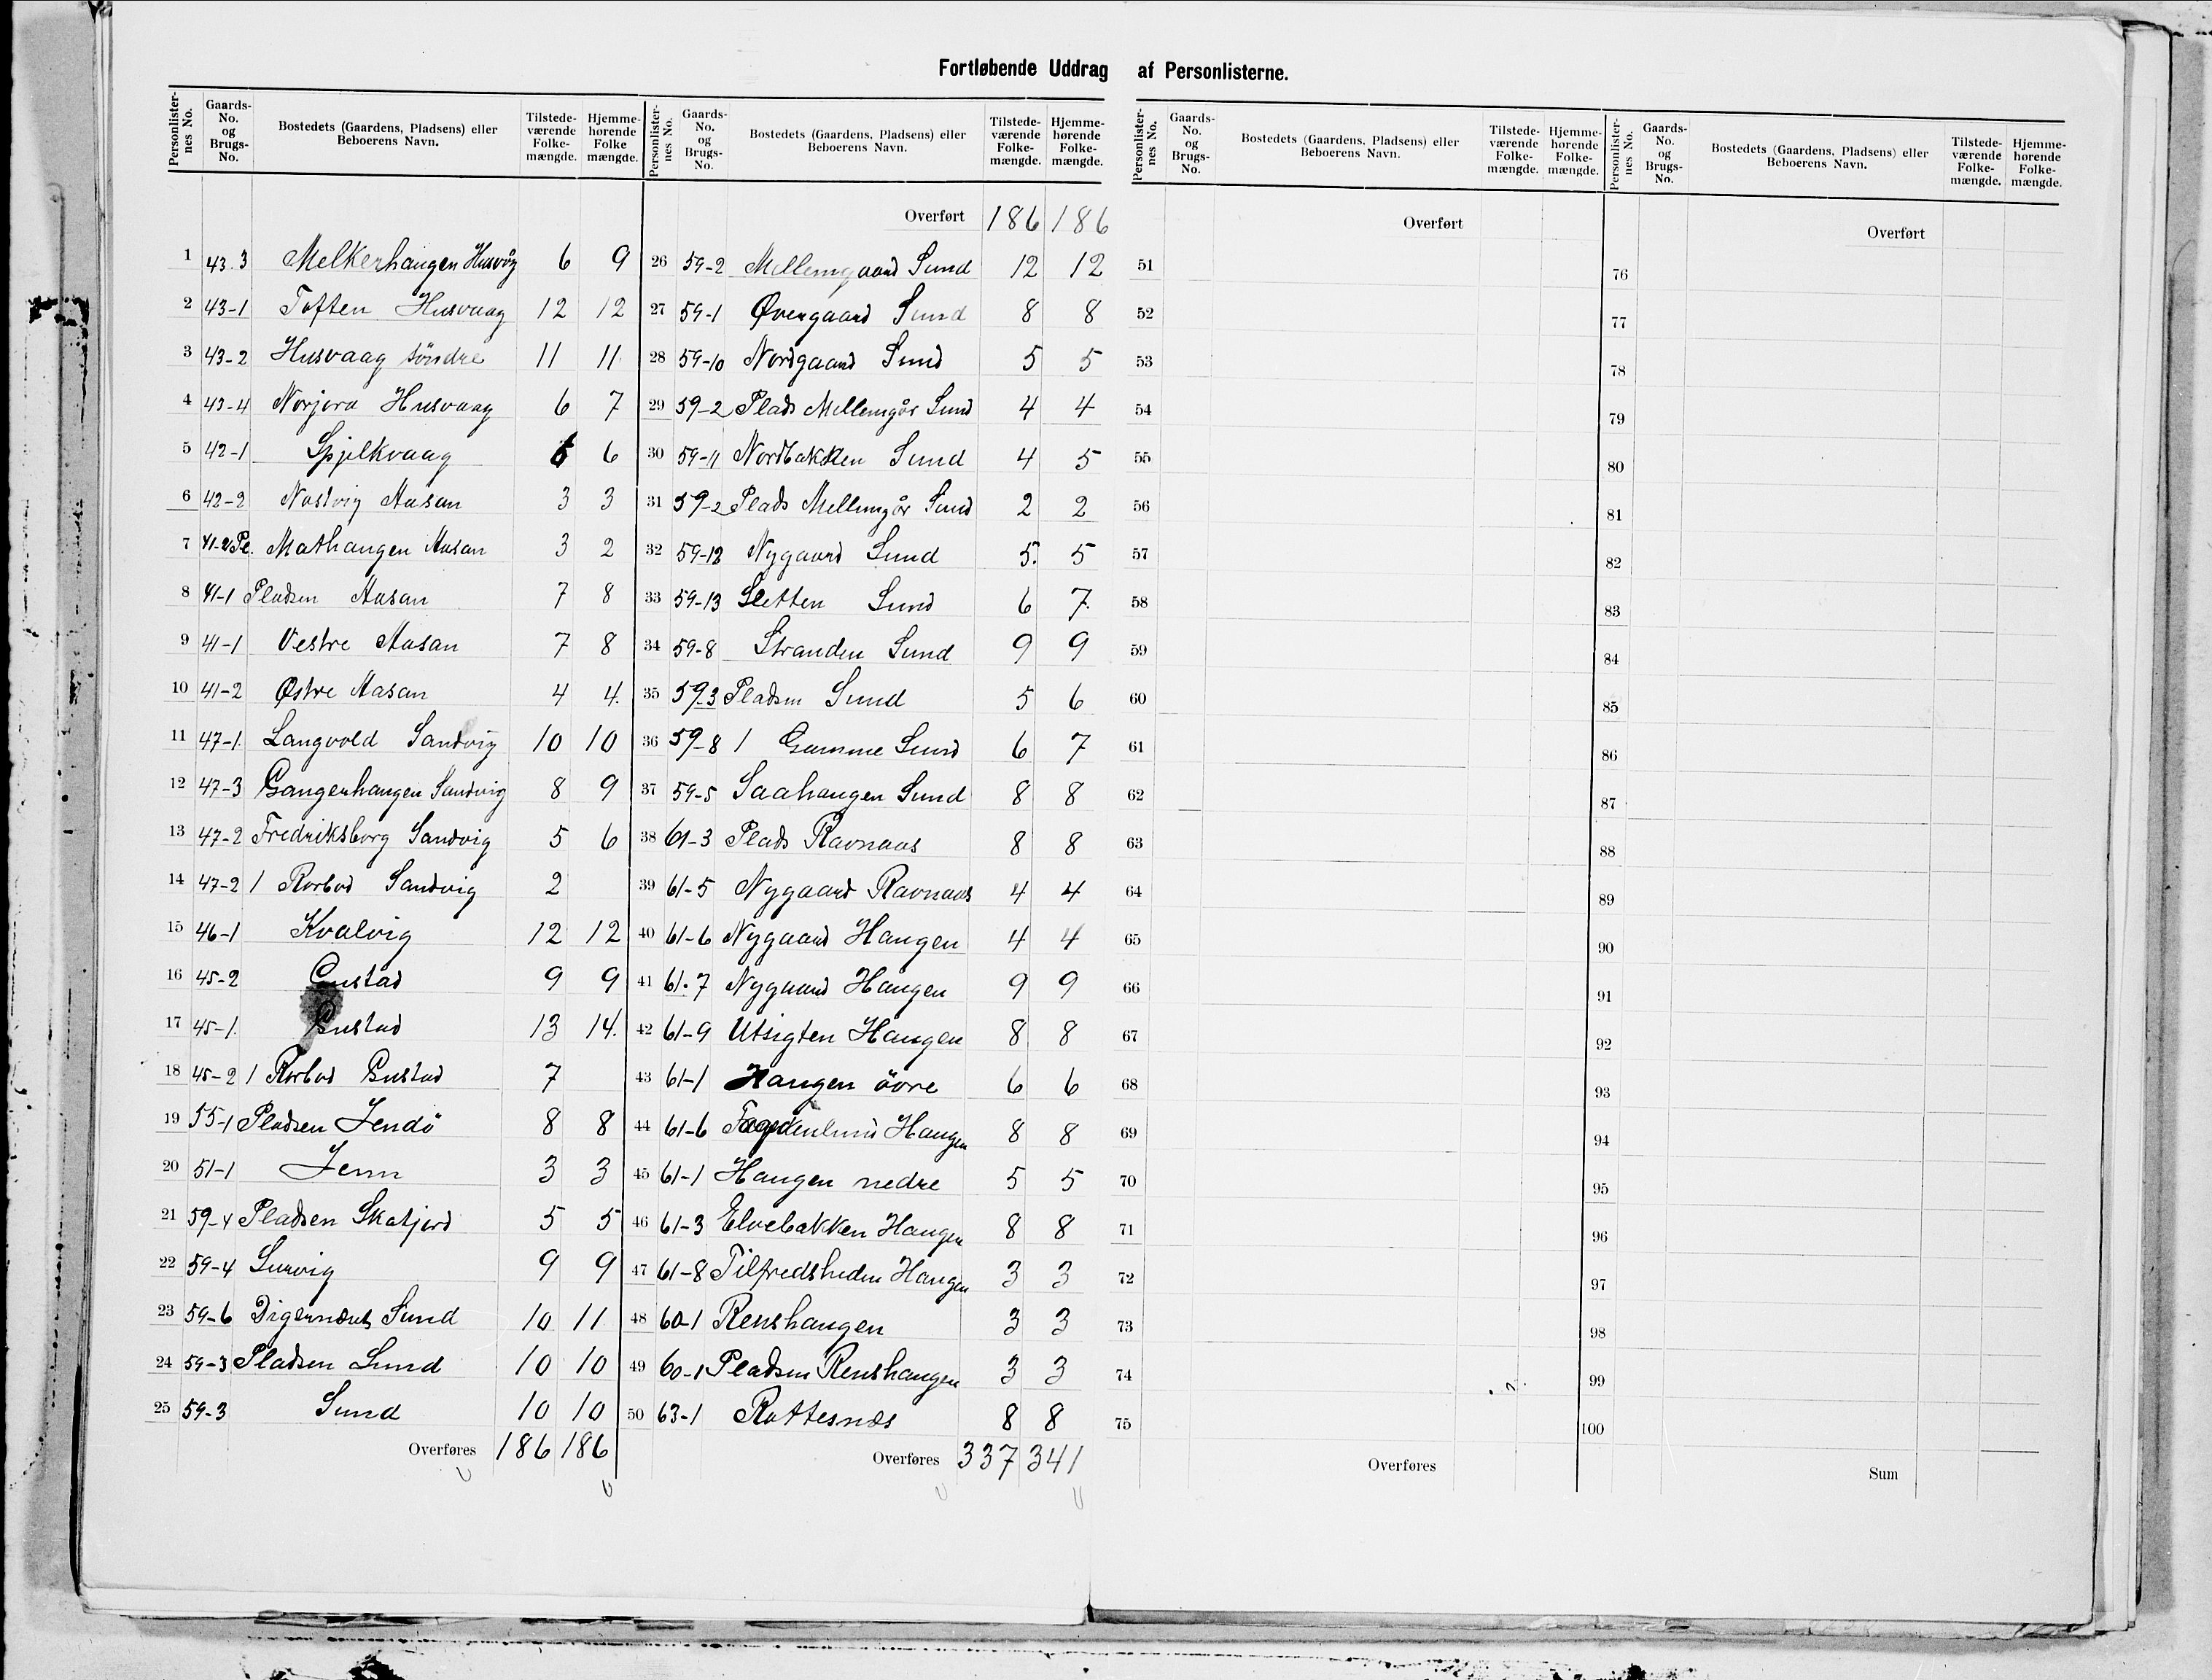 Fortløbende Uddrag af Personlisterne.
Personlisternes No. Gaards-No. og Brugs-No. Bostedets (Gaardens, Pladsens) eller Beboerens Navn. Tilstedeværende Folkemængde. Hjemmehørende Folkemængde.
1 43.3 Melkerhaugen Husvåg 6 9
2 43-1 Toften Husvaag 12 12
3 43-2 Husvaag söndre 11 11
4 43-4 Norjora Husvaag 6 7
5 42-1 Spjelkvaag 6 6
6 42-2 Nastvig Aasan 3 3
7 41-2 Pl. Mathaugen Aasan 3 2
8 41-1 Pladsen Aasan 7 8
9 41-1 Vestre Aasan 7 8
10 41-2 Østre Aasan 4 4
11 47-1 Langvold Sandvig 10 10
12 47-3 Gangerhaugen Sandvig 8 9
13 47-2 Fredriksborg Sandvig 5 6
14 47-2 1 Rorbod Sandvig 2
15 46-1 Kvalvig 12 12
16 45-2 Gustad 9 9
17 45-1 Gustad 13 14
18 45-2 1 Rorbod Gustad 7
19 55-1 Pladsen Jendö 8 8
20 51-1 Jenn 3 3
21 59-4 Pladsen Skatjord 5 5
22 59-4 Survig 9 9
23 59-6 Digernæs Sund 10 11
24 59-3 Pladsen Sund 10 10
25 59-3 Sund 10 10
Overføres 186 186
Overført 186 186
26 59-2 Mellemgaard Sund 12 12
27 59-1 Øvergaard Sund 8 8
28 59-10 Nordgaard Sund 5 5
29 59-2 Plads Mellemgår Sund 4 4
30 59-11 Nordbakken Sund 4 5
31 59-2 Plads Mellemgår Sund 2 2
32 59-12 Nygaard Sund 5 5
33 59-13 Sletten Sund 6 7
34 59-8 Stranden Sund 9 9
35 59-3 Pladsen Sund 5 6
36 59-8 1 Gamme Sund 6 7
37 59-5 Saahaugen Sund 8 8
38 61-3 Plads Ravnaas 8 8
39 61-5 Nygaard Ravnaas 4 4
40 61-6 Nygaard Haugen 4 4
41 61.7 Nygaard Haugen 9 9
42 61-9 Utsigten Haugen 8 8
43 61-1 Haugen övre 6 6
44 61-6 Haugen 8 8
45 61-1 Haugen nedre 5 5
46 61-3 Elvebakken Haugen 8 8
47 61-8 Tilfredsheden Haugen 3 3
48 60-1 Renshaugen 3 3
49 60-1 Pladsen Renshaugen 3 3
50 63-1 Rottesnæs 8 8
Overføres 337 341
Personlisternes No. Gaards-No. og Brugs-No. Bostedets (Gaardens, Pladsens) eller Beboerens Navn. Tilstedeværende Folkemængde. Hjemmehørende Folkemængde.
Overført
51
52
53
54
55
56
57
58
59
60
61
62
63
64
65
66
67
68
69
70
71
72
73
74
75
Overføres
Overført
76
77
78
79
80
81
82
83
84
85
86
87
88
89
90
91
92
93
94
95
96
97
98
99
100
Sum